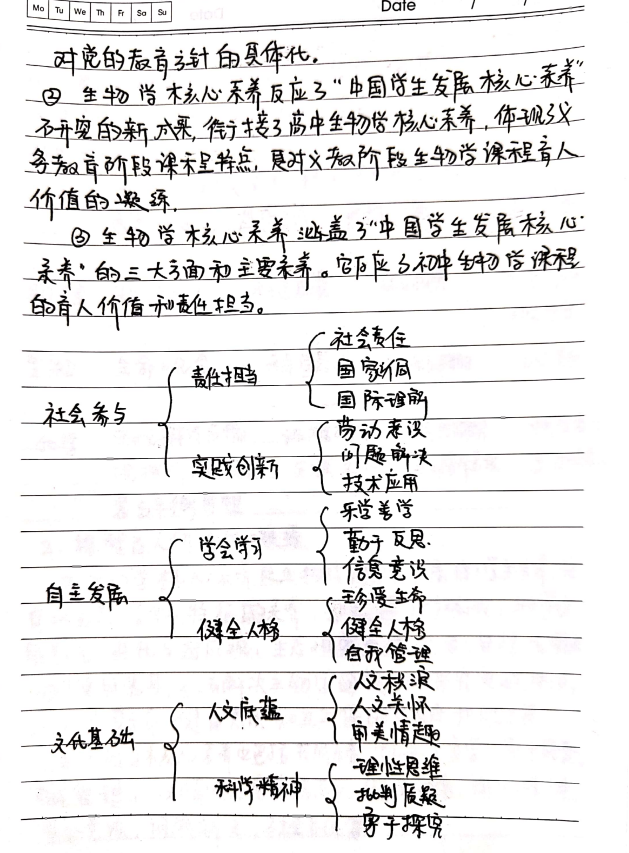 Mo Tu We Th Fr Sa Su
Date / /
对党的教育方针的具体化。
② 生物学核心素养反应了“中国学生发展核心素养”
研究的新成果，衔接了高中生物学核心素养，体现了义
务教育阶段课程特点，是对义教阶段生物学课程育人
价值的凝练.
③ 生物学核心素养涵盖了“中国学生发展核心
素养”的三大方面和主要素养。它反应了初中生物学课程
的育人价值和责任担当。
社会参与
责任担当
社会责任
国家认同
国际理解
实践创新
劳动意识
问题解决
技术应用
自主发展
学会学习
乐学善学
勤于反思
信息意识
健全人格
珍爱生命
健全人格
自我管理
文化基础
人文底蕴
人文积淀
人文关怀
审美情趣
科学精神
理性思维
批判质疑
勇于探究